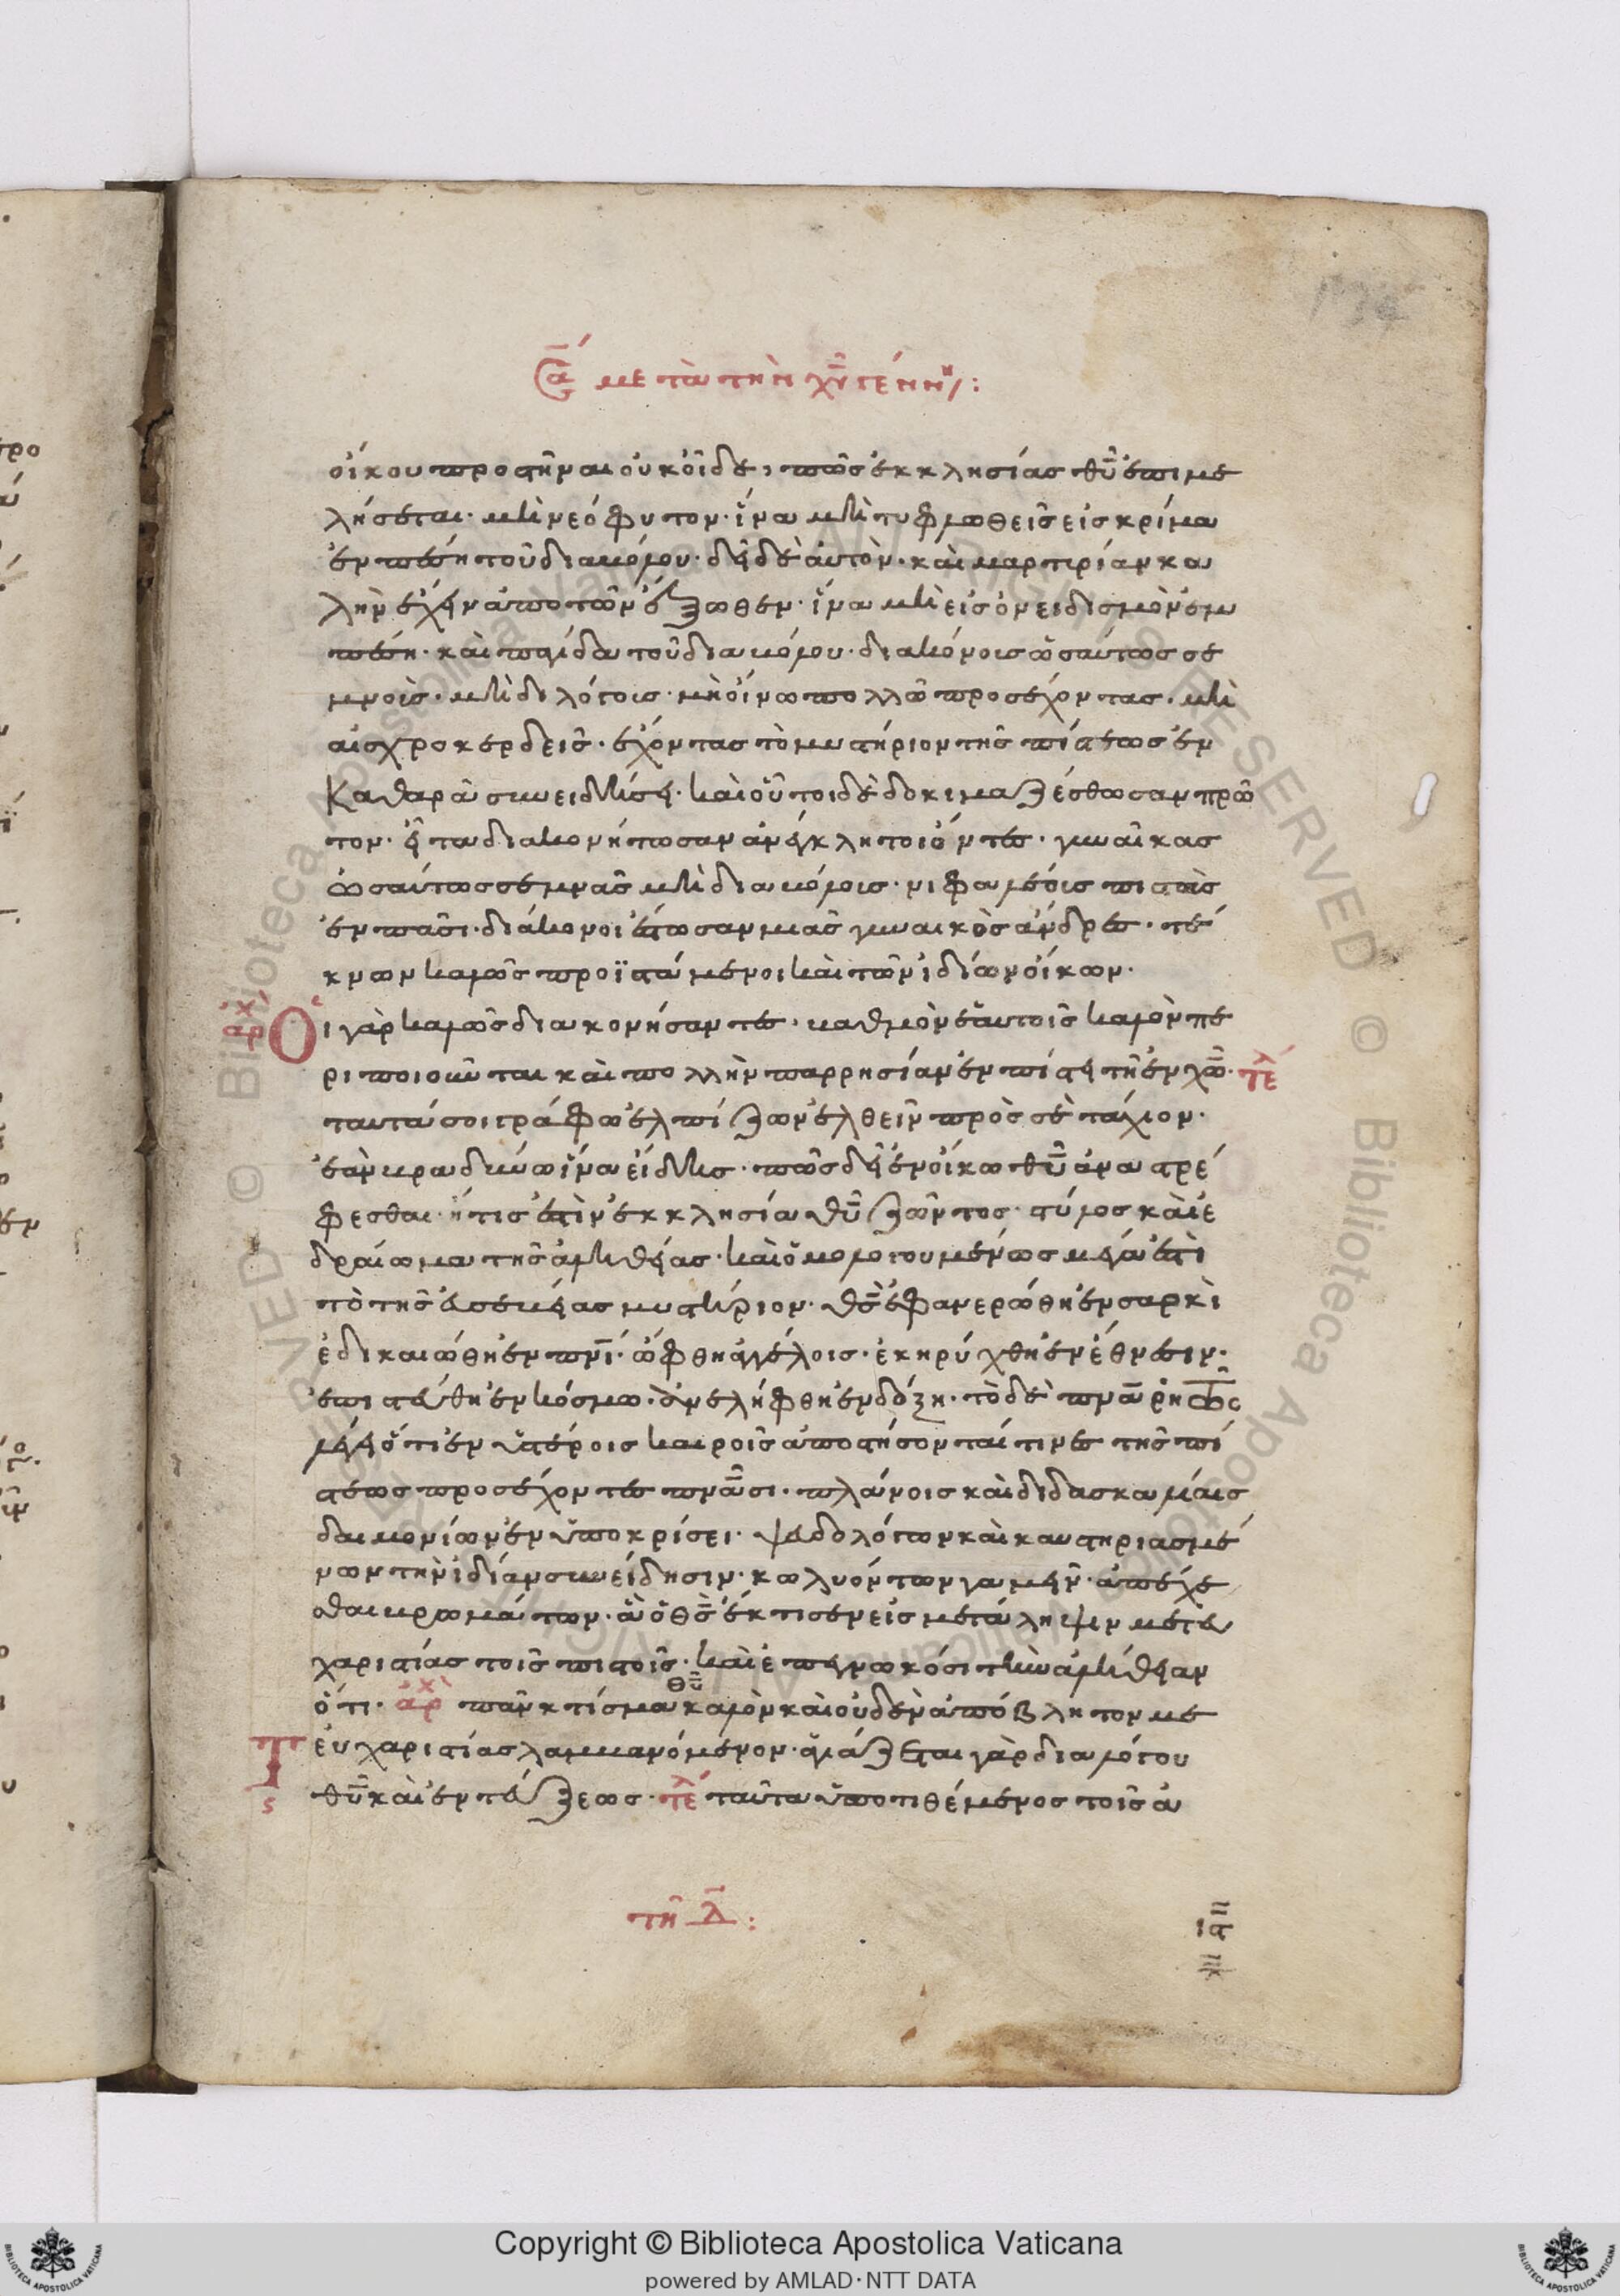 Σα μετὰ τὴν χυ γέννη:
οἴκου προστῆναι οὐκ οἶδε, πῶς ἐκκλησίας θυ ἐπιμε
λήσεται· μὴ νεόφυτον· ἵνα μὴ τυφλωθεὶς εἰς κρίμα
ἐνπέση τοῦ διαβόλου· δεῖ δὲ αὐτὸν· καὶ μαρτυρίαν κα
λὴν ἔχειν ἀπο τῶν ἔξωθεν· ἵνα μὴ εἰς ὀνειδισμὸν ἐμ
πέση· καὶ παγίδα τοῦ διαβόλου· διακόνοις ὡσαύτως σε
μνοὺς· μὴ διλόγοις· μὴ οἴνω πολλῶ προσέχοντας· μὴ
αἰσχροκερδεῖς· ἔχοντας τὸ μυστήριον τῆς πίστεως ἐν
Καθαρᾶ συνειδήσει· καὶ οὗτοι δὲ δοκιμαζέσθωσαν πρῶ
τον· εἶτα διακονήτωσαν ἀνέγκλητοι ὄντες· γυναῖκας
ὡσαύτως σεμνὰς μὴ διαβόλοις· νιφαλέοις πιστὰς
ἐν πᾶσι· διάκονοι ἔστωσαν μιᾶς γυναικὸς ἄνδρες· τέ
κνων καλῶς προϊστάμενοι καὶ τῶν ἰδίων οἴκων·
ἀρχ Οἱ γὰρ καλῶς διακονήσαντες· βαθμὸν ἑαυτοῖς καλὸν πε
ριποιοῦνται καὶ πολλὴν παρρησίαν ἐν πίστει τῆ ἐν χω· τελ
ταυτά σοι γράφω ἐλπίζων ἐλθεῖν πρὸς σὲ τάχιον·
ἐὰν βραδύνω ἵνα εἴδης· πῶς δεῖ ἐν οἴκω θυ ἀναστρέ
φεσθαι· ἥτις ἐστὶν ἐκκλησία θυ ζῶντος· στύλος καὶ ἑ
δραίωμα τῆς ἀληθείας· καὶ ὁμολογουμένως μέγα ἐστὶ
τὸ τῆς εὐσεβείας μυστήριον· θς ἐφανερώθη ἐν σαρκὶ
ἐδικαιώθη ἐν πνι· ὤφθη ἀγγέλοις· ἐκηρύχθη ἐν ἔθνεσιν·
ἐπιστεύθη ἐν κόσμω· ἀνελήφθη ἐν δόξη· τὸ δὲ πνα ῥητῶς
λέγει ὅτι ἐν ὑστέροις καιροῖς ἀποστήσονταί τινες τῆς πί
στεως προσέχοντες πνασι· πλάνοις καὶ διδασκαλίαις
δαιμονίων ἐν ὑποκρίσει· ψευδολόγων καὶ καυστηριασμέ
νων τὴν ἰδίαν συνείδησιν· κωλυόντων γαμεῖν· ἀπέχε
θαι βρωμάτων· ἃ ὁ θς ἔκτισεν εἰς μετάληψιν μετευ
χαριστίας τοῖς πιστοῖς· καὶ ἐπεγνωκόσι τὴν ἀλήθειαν
ὅτι· ἀρχ πᾶν κτίσμα θυ καλὸν καὶ οὐδὲν ἀπόβλητον με
τ εὐχαριστίας λαμβανόμενον· ἁγιάζεται γὰρ δια λόγου
ς θυ καὶ ἐντεύξεως· τελ ταῦτα ὑποτιθέμενος τοῖς ἀ
τῆ δ:
Copyright © Biblioteca Apostolica Vaticana
powered by AMLAD·NTT DATA